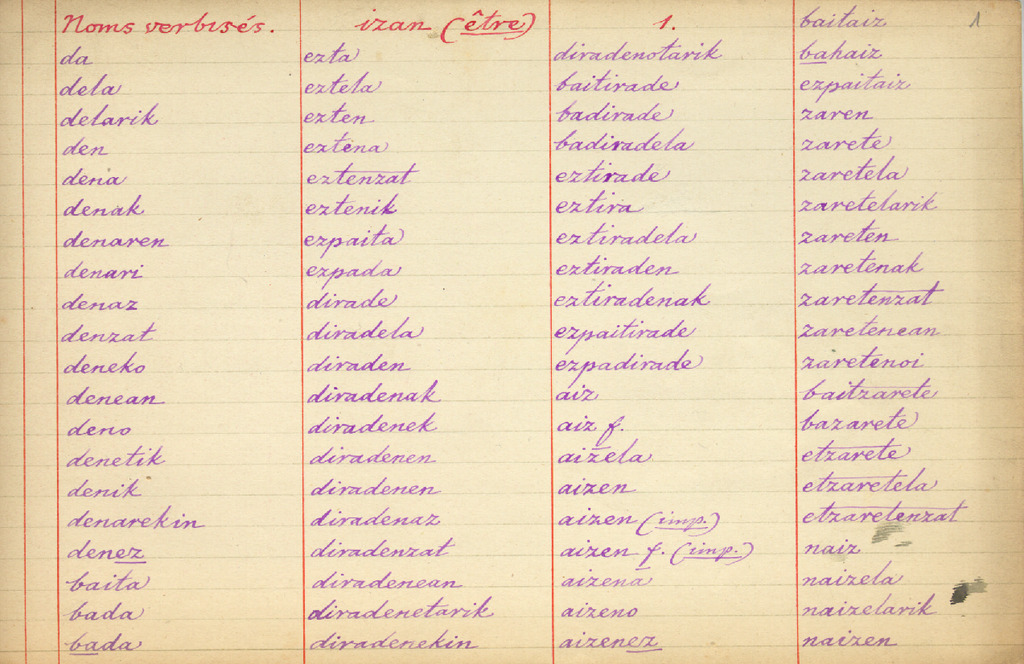 Noms verbisés.
da
dela
delarik
den
dena
denak
denaren
denari
denaz
denzat
deneko
denean
deno
denetik
denik
denarekin
denez
baita
bada
bada
izan (être)
ezta
eztela
ezten
eztena
eztenzat
eztenik
ezpaita
ezpada
dirade
diradela
diraden
diradenak
diradenek
diradenen
diradenen
diradenaz
diradenzat
diradenean
diradenetarik
diradenekin
1.
diradenotarik
baitirade
badirade
badiradela
eztirade
eztira
eztiradela
eztiraden
eztiradenak
ezpaitirade
ezpadirade
aiz
aiz f.
aizela
aizen
aizen (imp.)
aizen f. (imp.)
aizena
aizeno
aizenez
baitaiz 1
bahaiz
ezpaitaiz
zaren
zarete
zaretela
zaretelarik
zareten
zaretenak
zaretenzat
zaretenean
zaretenoi
baitzarete
bazarete
etzarete
etzaretela
etzaretenzat
naiz
naizela
naizelarik
naizen